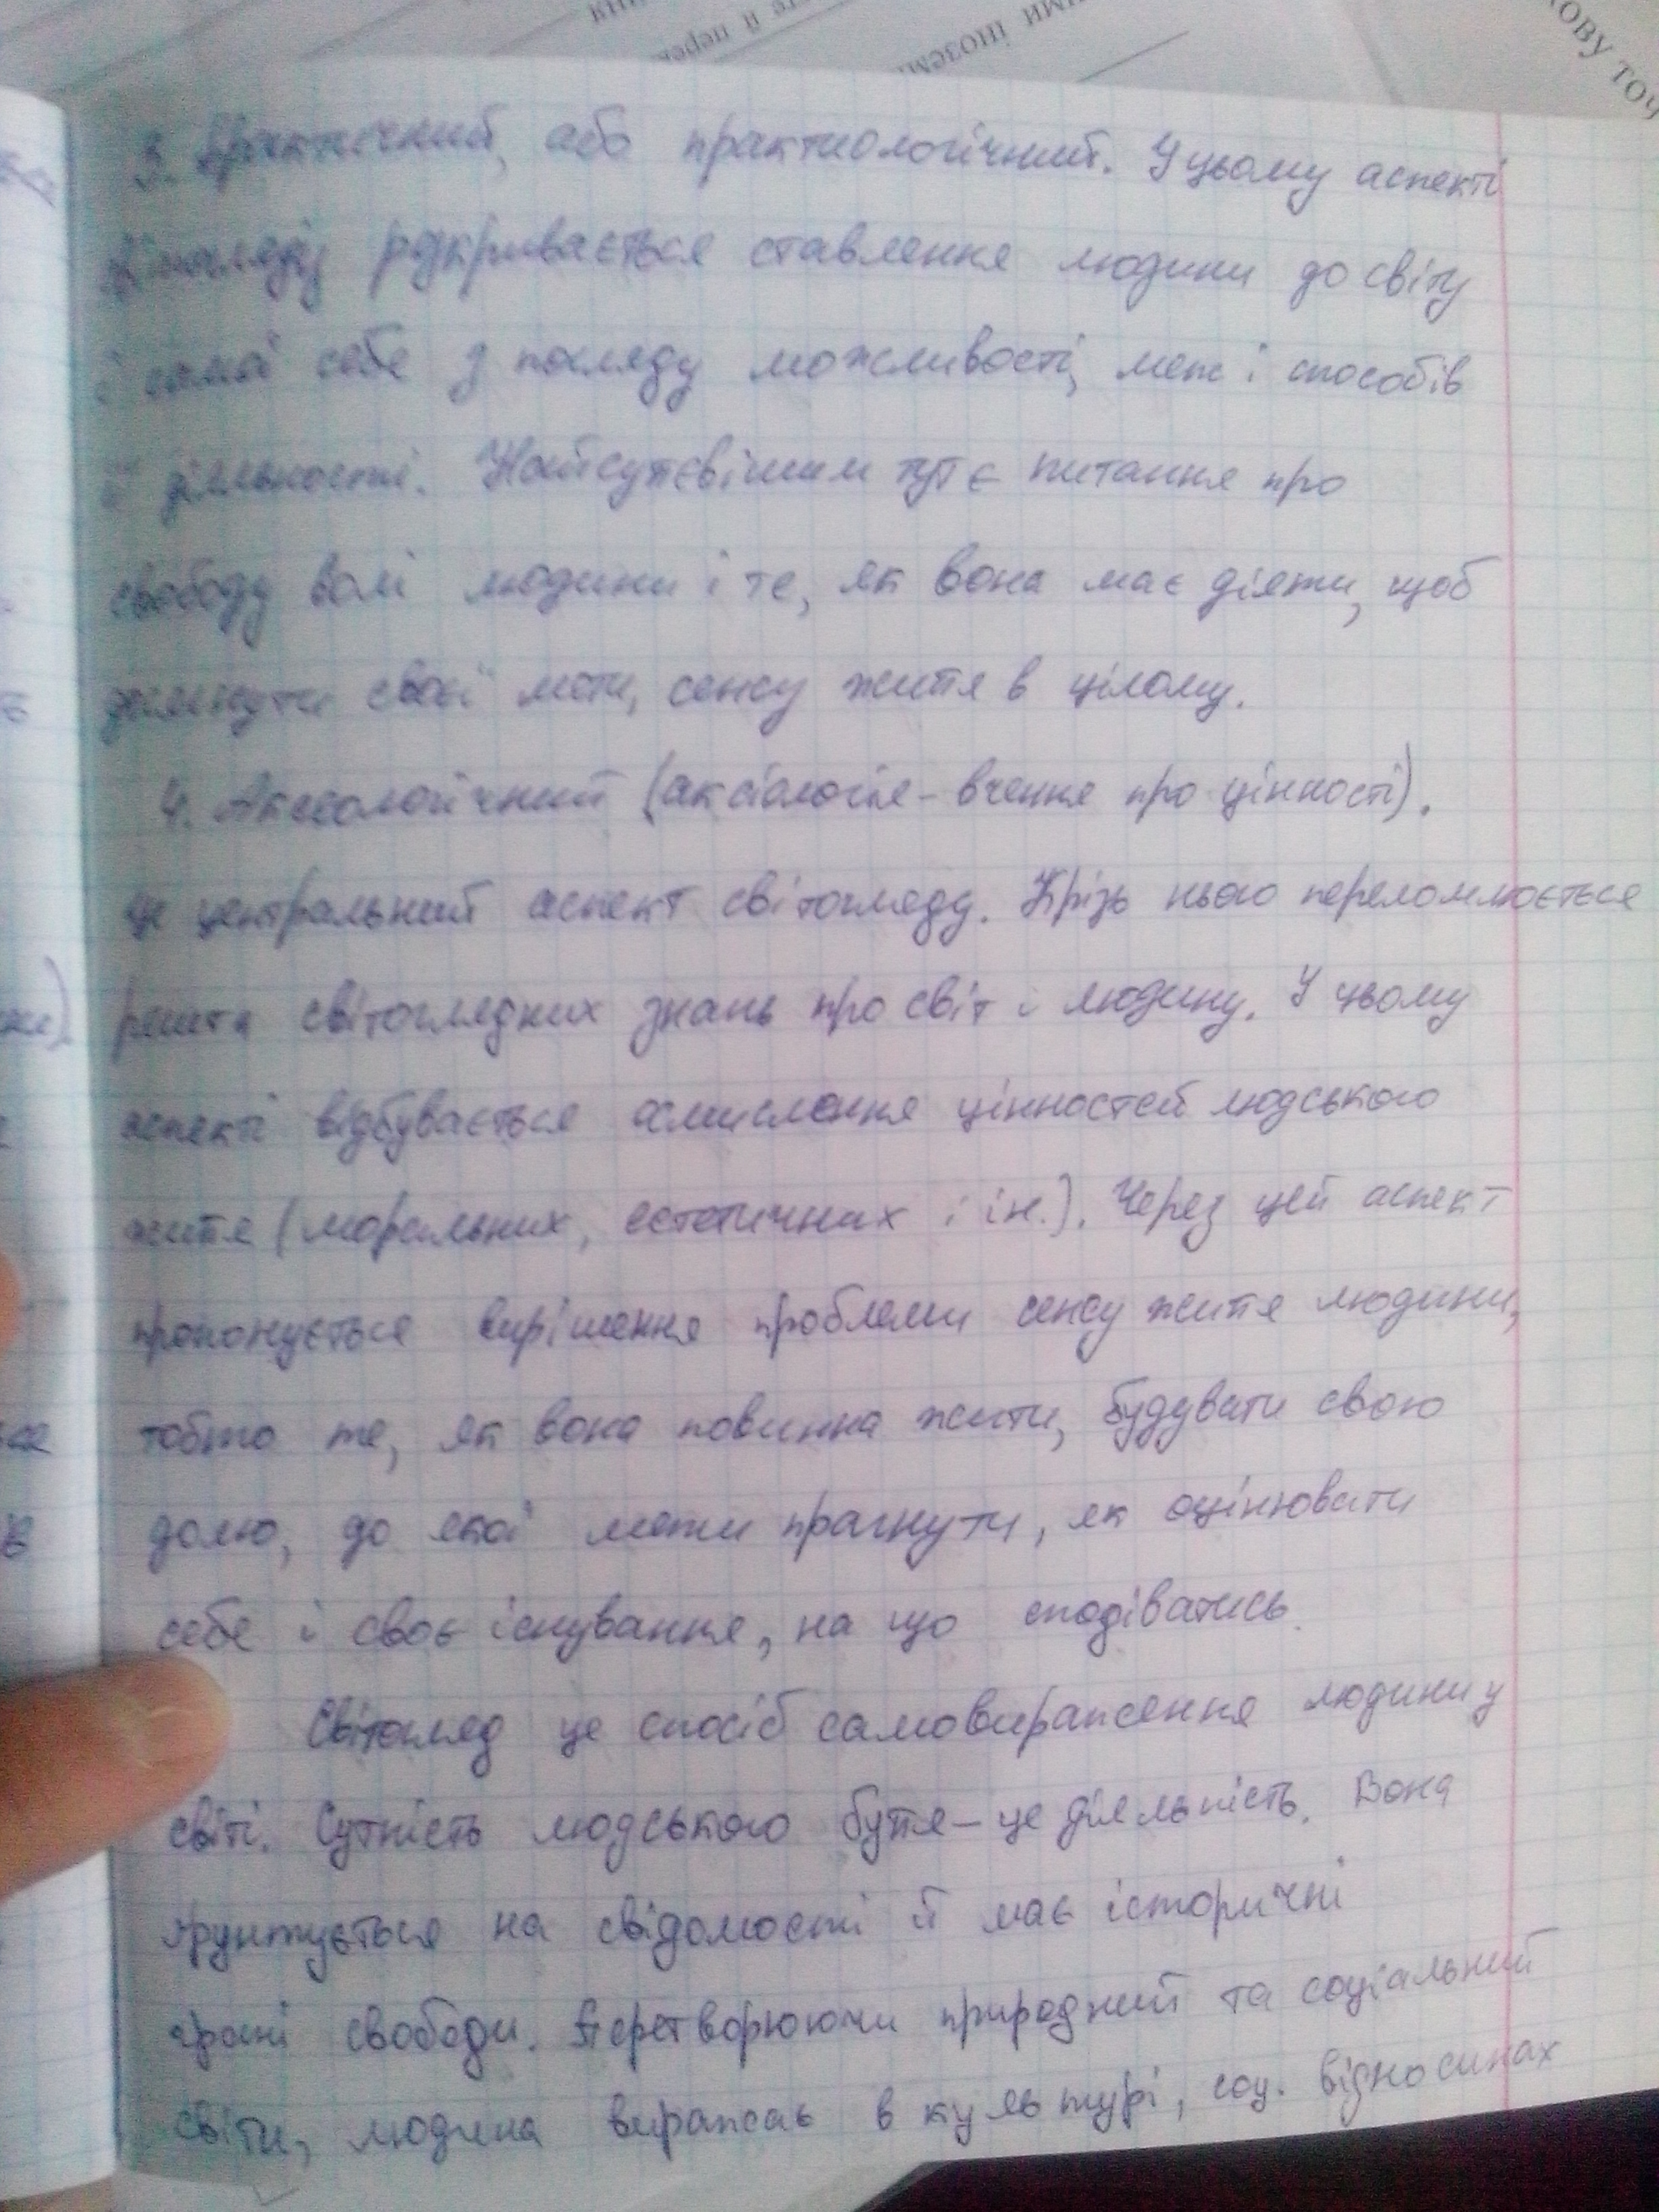 3. Практичний, або практиологічний. У цьому аспекті
світогляду розкривається ставлення людини до світу
і самої себе з погляду можливості, меж і способів
її діяльності. Найсуттєвішим тут є питання про
свободу волі людини і те, як вона має діяти, щоб
досягнути своєї мети, сенсу життя в цілому.
4. Аксеологічний (аксіологія – вчення про цінності).
Це центральний аспект світогляду. Крізь нього переломлюється
решта світоглядних знань про світ і людину. У цьому
аспекті відбувається осмислення цінностей людського
життя (моральних, естетичних і ін.). Через цей аспект
пропонується вирішення проблеми сенсу життя людини,
тобто те, як вона повинна жити, будувати свою
долю, до якої мети прагнути, як оцінювати
себе і своє існування, на що сподіватись.
Світогляд це спосіб самовираження людини у
світі. Сутність людського буття – це діяльність. Вона
грунтується на свідомості й має історичні
грані свободи. Перетворюючи природний та соціальний
світи, людина виражає в культурі, соц. відносинах